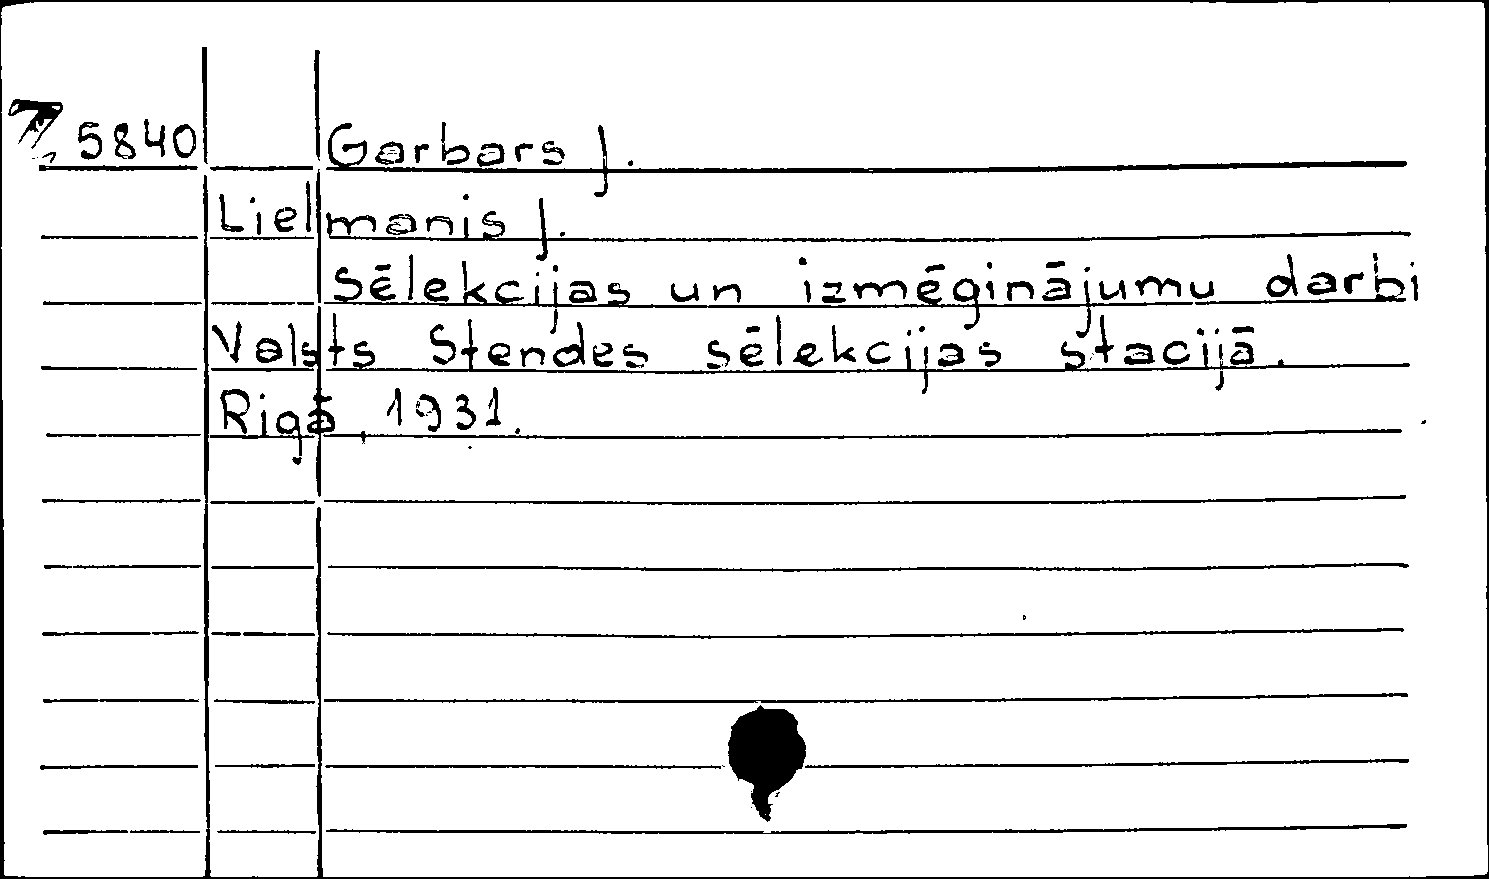 5840 Garbars J.
Lielmanis J.
Sēlekcijas un izmēģinājumu darbi
Valsts Stendes sēlekcijas stacijā.
Rigā, 1931.